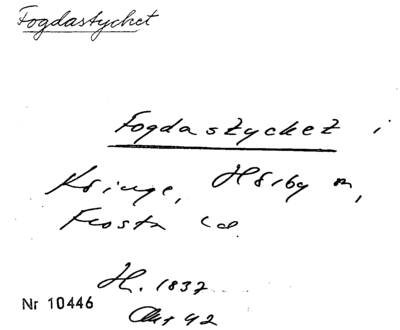 Fogdastycket
Fogdastycket i
Kringe, Hörby m,
Frosta hd.
H. 1837
Nr 10446
Akt 42